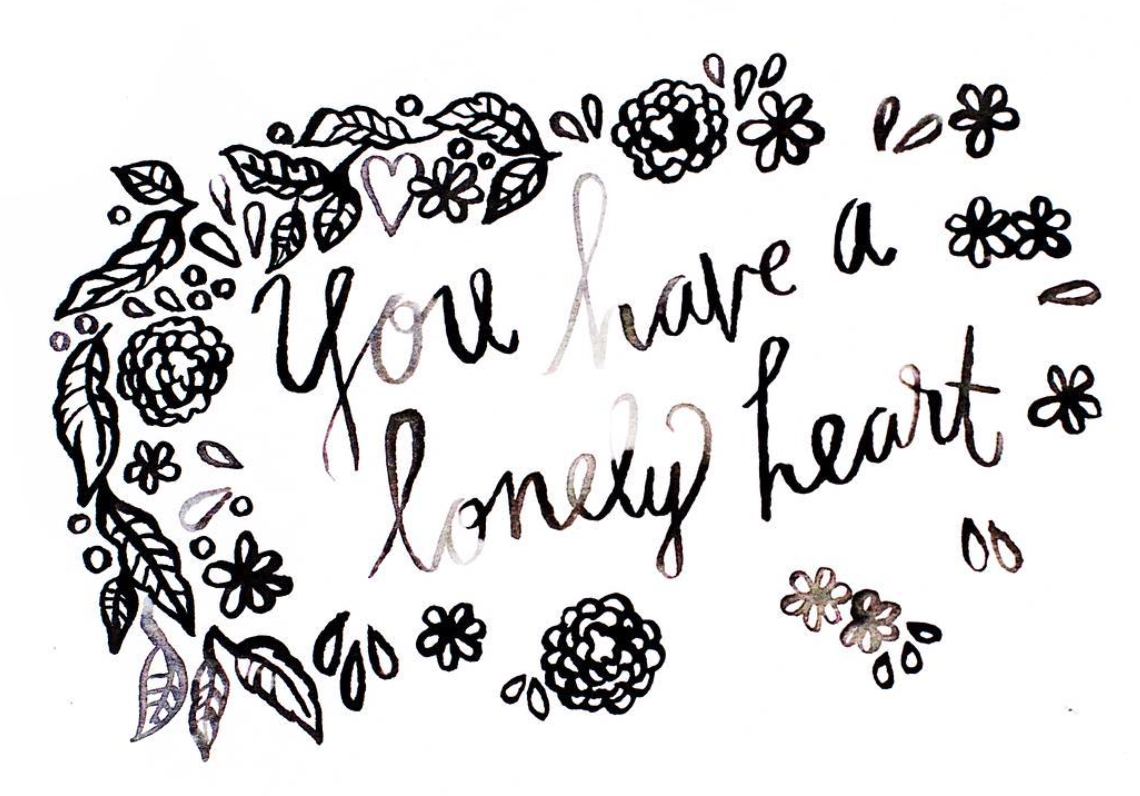 You have a
lonely heart